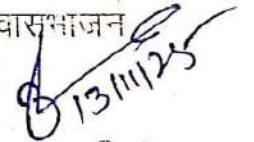 वासभाजन
13/11/25